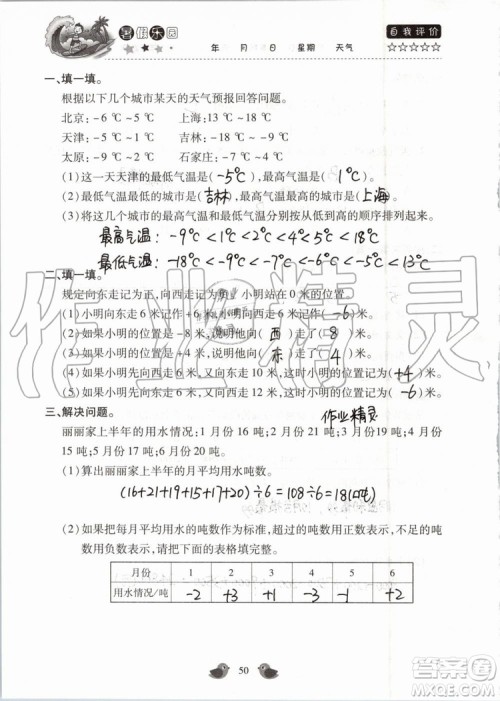 暑假乐园
年 月 日 星期 天气
自我评价
☆☆☆☆☆
一、填一填。
根据以下几个城市某天的天气预报回答问题。
北京:-6 ℃~5 ℃ 上海:13 ℃~18 ℃
天津:-5 ℃~1 ℃ 吉林:-18 ℃~-9 ℃
太原:-9 ℃~2 ℃ 石家庄:-7 ℃~4 ℃
(1)这一天天津的最低气温是( -5℃ ),最高气温是( 1℃ )。
(2)最低气温最低的城市是( 吉林 ),最高气温最高的城市是( 上海 )。
(3)将这几个城市的最高气温和最低气温分别按从低到高的顺序排列起来。
最高气温: -9℃<1℃<2℃<4℃<5℃<18℃
最低气温: -18℃<-9℃<-7℃<-6℃<-5℃<13℃
二、填一填。
规定向东走记为正,向西走记为负,小明站在0米的位置。
(1)小明向东走6米记作+6米,向西走4米记作( -4 )米。
(2)如果小明的位置是-8米,说明他向( 西 )走了( 8 )米。
(3)如果小明的位置是+4米,说明他向( 东 )走了( 4 )米。
(4)如果小明向西走6米,又向东走10米,这时小明的位置记为( +4 )米。
(5)如果小明向东走6米,又向西走12米,这时小明的位置记为( -6 )米。
三、解决问题。
作业精灵
丽丽家上半年的用水情况:1月份16吨;2月份21吨;3月份19吨;4月份15吨;5月份17吨;6月份20吨。
(1)算出丽丽家上半年的月平均用水吨数。
(16+21+19+15+17+20)÷6=108÷6=18(吨)
(2)如果把每月平均用水的吨数作为标准,超过的吨数用正数表示,不足的吨
数用负数表示,请把下面的表格填完整。
月份 1 2 3 4 5 6
用水情况/吨 -2 +3 +1 -3 -1 +2
50
作业精灵
答案圈
MXQE.COM